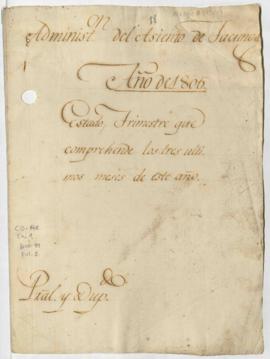 Administ.on del Asiento de
Año de 1806.
Estado, Trimestre que
comprehende los tres ulti
mos meses de este año.
Pral. y Dup.do